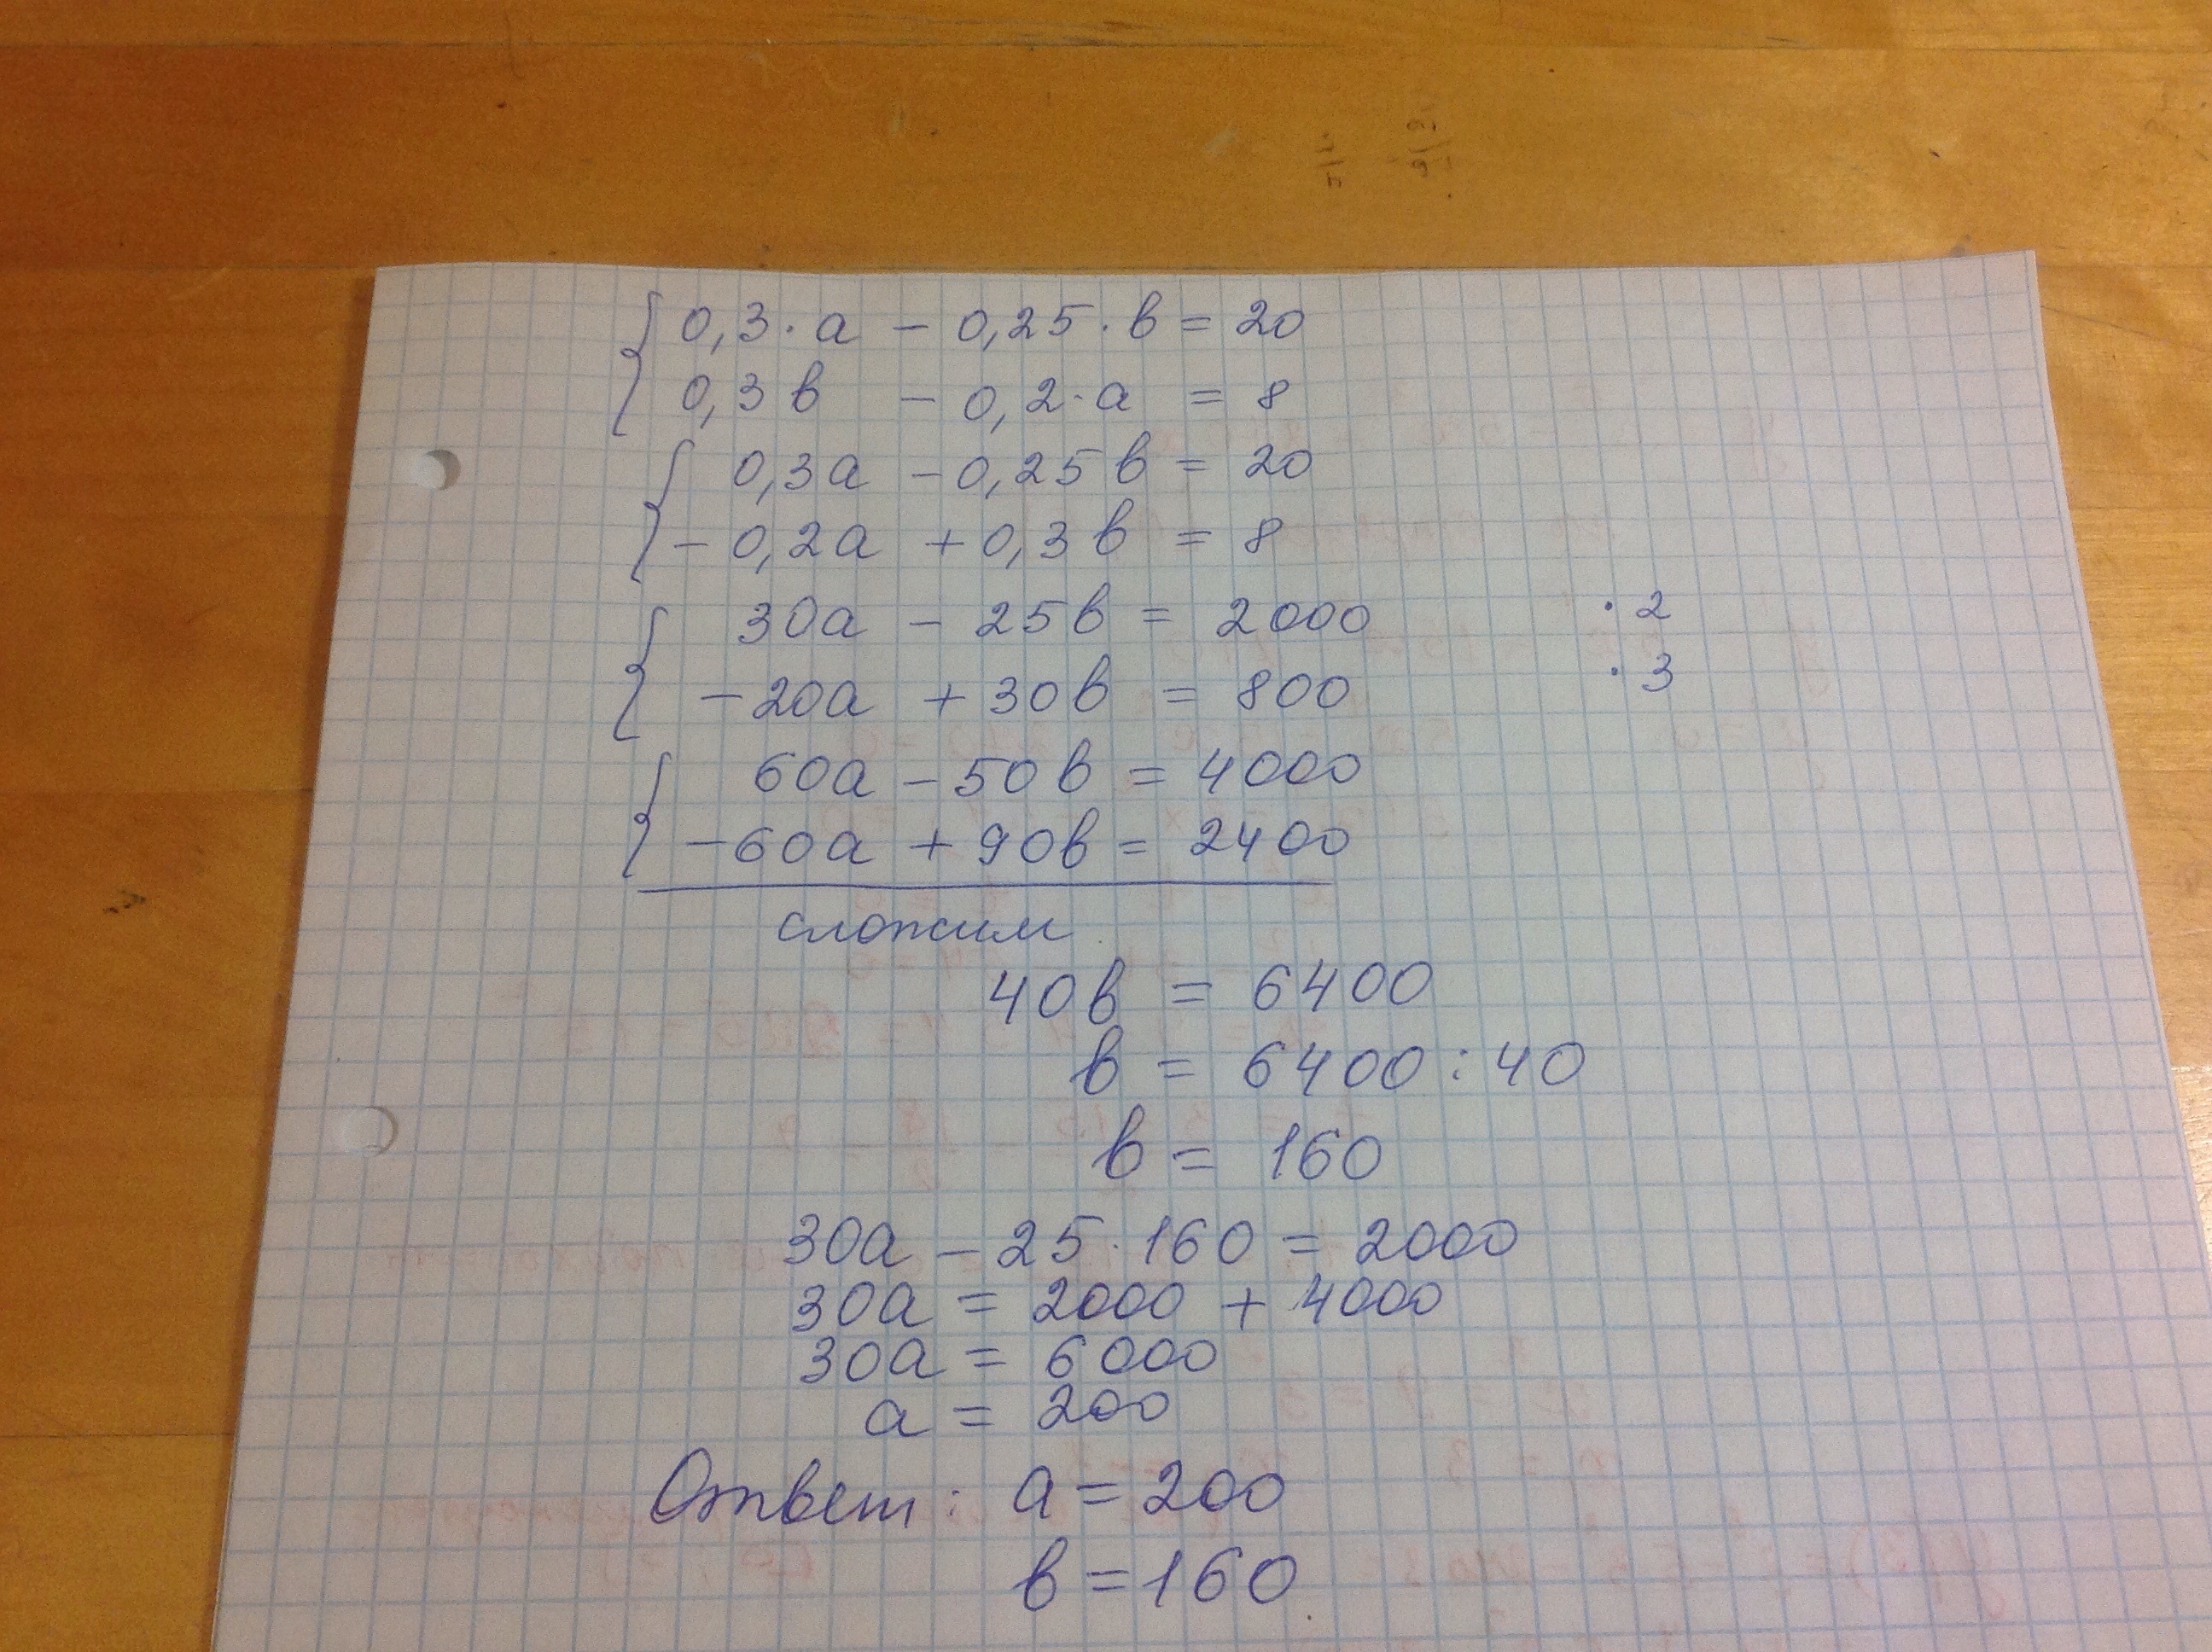 0,3·а – 0,25·в = 20
0,3в – 0,2·а = 8
0,3а – 0,25в = 20
– 0,2а + 0,3в = 8
30а – 25в = 2000 · 2
–20а + 30в = 800 · 3
60а – 50в = 4000
–60а + 90в = 2400
сложим
40в = 6400
в = 6400 : 40
в = 160
30а – 25·160 = 2000
30а = 2000 + 4000
30а = 6000
а = 200
Ответ: а = 200
в = 160